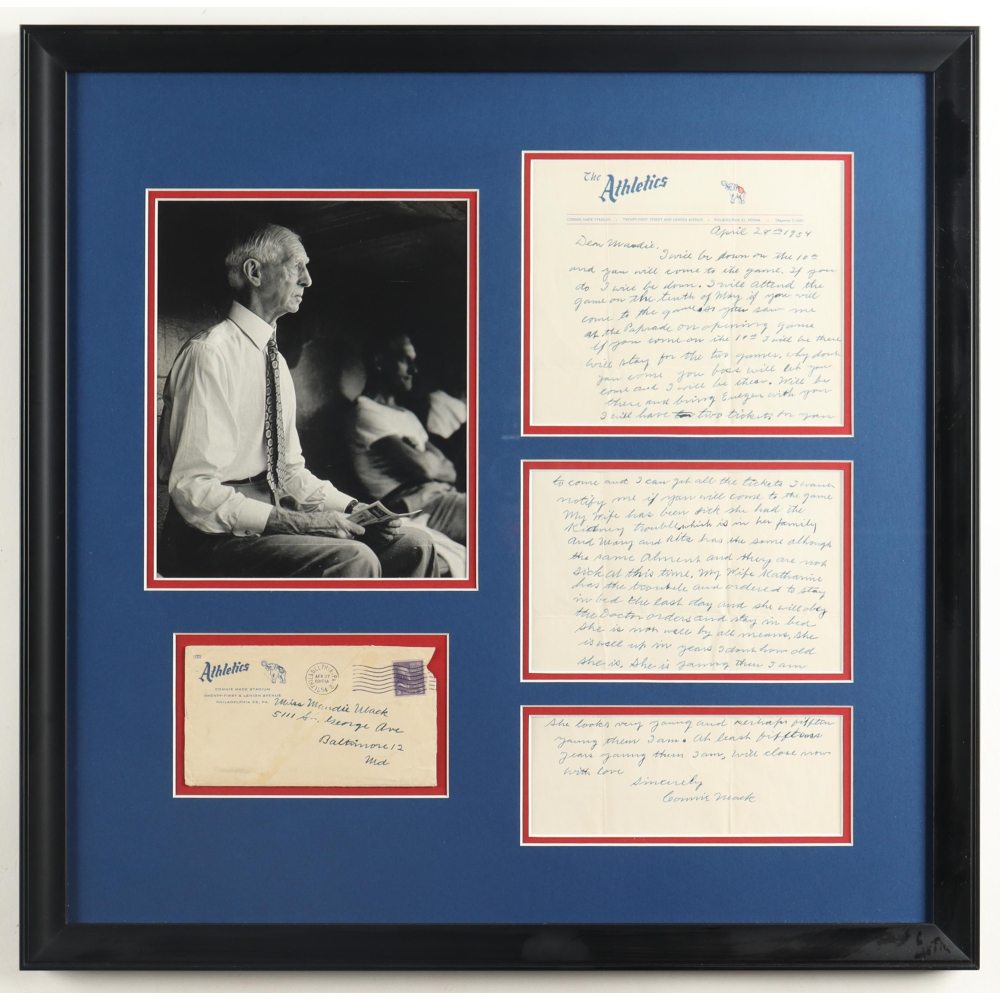 The Athletics
CONNIE MACK STADIUM • TWENTY-FIRST STREET AND LEHIGH AVENUE • PHILADELPHIA 32, PENNA.
April 28th 1954
Dear Maudie,
I will be down on the 10th
and you will come to the game. If you
do I will be down. I will attend the
game on the tenth of May if you will
come to the game so you saw me
at the Paprade on opening game
If you come on the 10th I will be there
will stay for the two games, why dont
you come you boss will let you
come and I will be there. Will be
there and bring with you
I will have two tickets for you
to come and I can get all the tickets I want
notify me if you will come to the game
My Wife has been sick she had the
Kidney trouble which is in her family
and Mary and Rita has the same although
the same Alment and they are not
sick at this time. My Wife Katharine
has the trouble and ordered to stay
in bed the last day and she will obey
the Doctor orders and stay in bed
She is not well by all means, she
is well up in years I dont how old
she is, She is young then I am
She looks very young and perhaps fiffteen
young then I am. At least fiffteen
years young then I am, Will close now
with love
Sincerely
Connie Mack
Athletics
CONNIE MACK STADIUM
TWENTY-FIRST & LEHIGH AVENUE
PHILADELPHIA 32, PA.
PHILADELPHIA, PA.
APR 27
1954
Miss Maudie Mack
5111 St. George Ave
Baltimore 12
Md